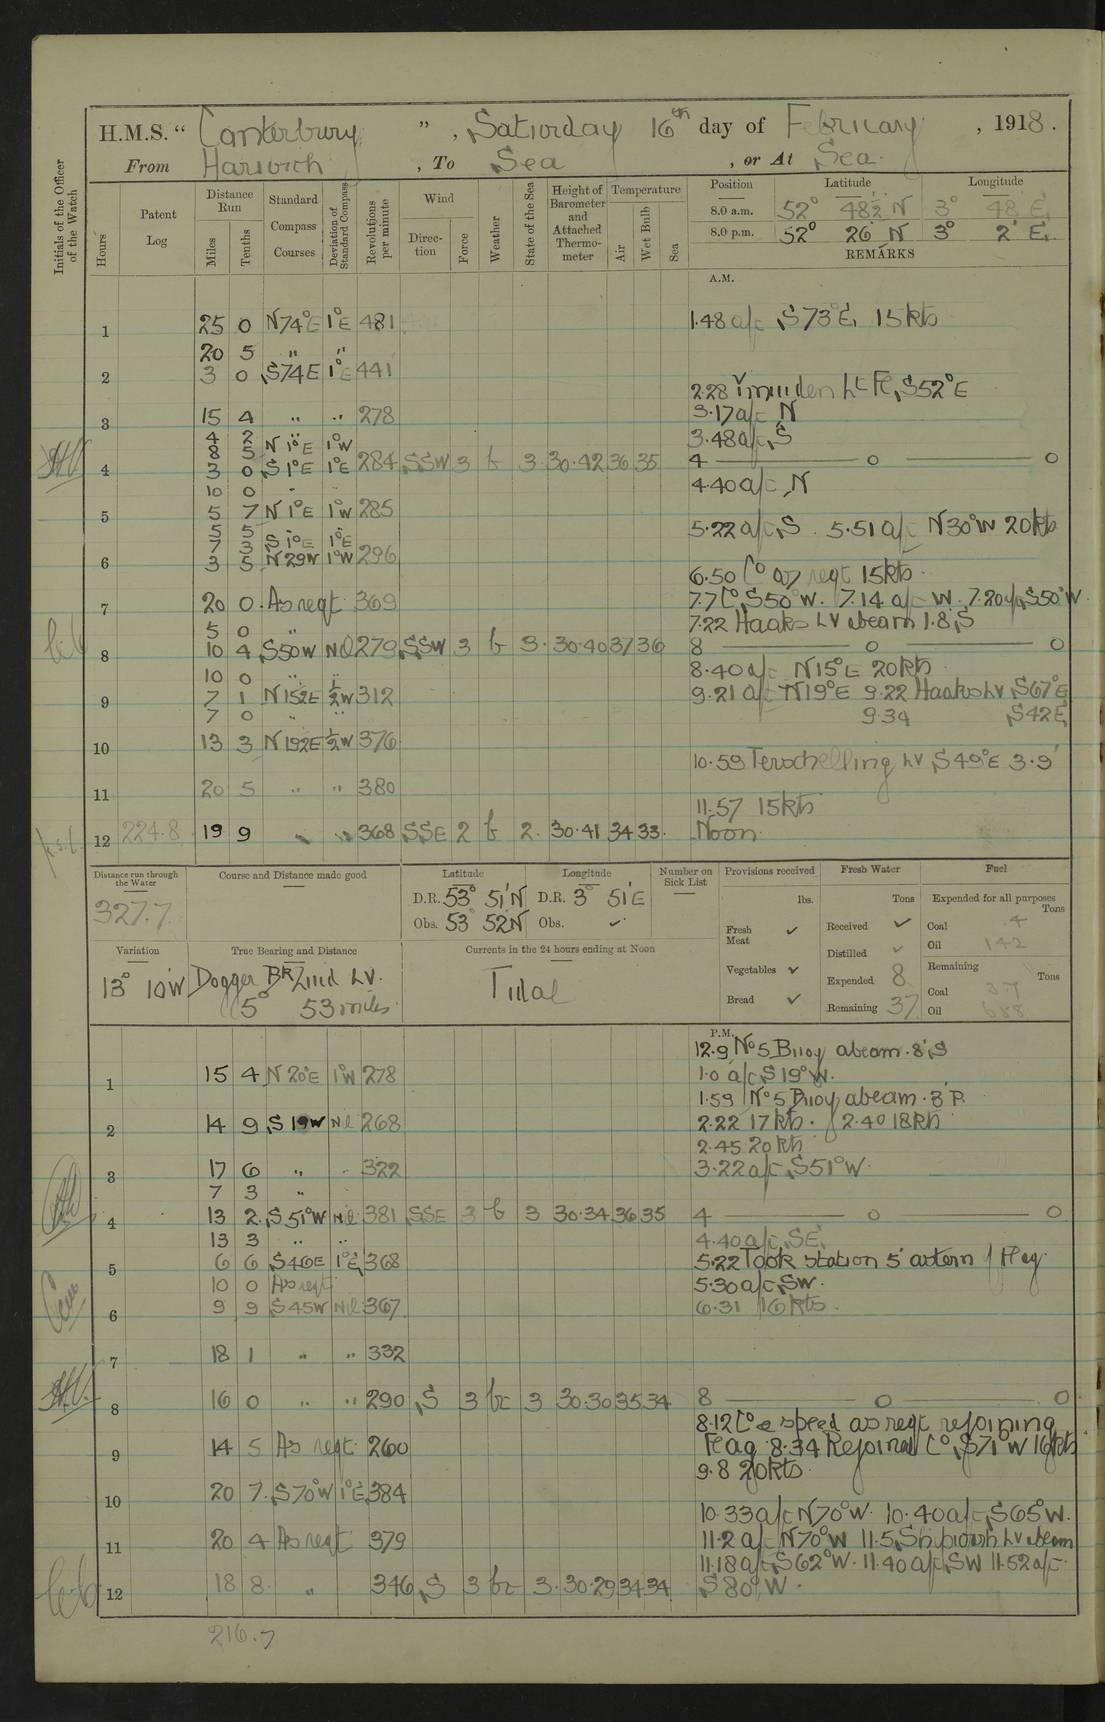 H.M.S. " Canterbury " , Saturday 16th day of February , 1918.
From Harwich , To Sea , or At Sea.
Initials of the Officer of the Watch
Hours
Patent Log
Distance Run
Miles Tenths
Standard Compass Courses
Deviation of Standard Compass
Revolutions per minute
Wind
Direction Force
Weather
State of the Sea
Height of Barometer and Attached Thermometer
Temperature
Air Wet Bulb Sea
Position Latitude Longitude
8.0 a.m. 52° 48½ N 3° 48 E.
8.0 p.m. 52° 26 N 3° 2' E.
REMARKS
A.M.
1 25 0 N74°E 1°E 481 1.48 a/c S73°E, 15kts
20 5 " "
2 3 0 S74E 1°E 441
2.28 Ymuiden S52°E
3 15 4 " " 278 3.17 a/c N
4 2 "
8 5 N1°E 1°W 3.48 a/c S
4 3 0 S1°E 1°E 284 SSW 3 b 3 30.42 36 35 4 — o — o
10 0 " 4.40 a/c N
5 5 7 N1°E 1°W 285
5 5 5.22 a/c S. 5.51 a/c N30°W 20kts
7 3 S1°E 1°E
6 3 5 N29W 1°W 296
6.50 Co as reqt 15kts.
7 20 0 As reqt 369 7.7 Co S50°W. 7.14 a/c W. 7.20 a/c S50°W
5 0 " 7.22 Haaks LV abeam 1.8'S
8 10 4 S50W Nil 279 SSW 3 b 3 30.40 37 36 8 — o — o
10 0 " 8.40 a/c N15°E 20kts.
9 7 1 N15½E ½W 312 9.21 a/c N19°E 9.22 Haaks LV S67°E
7 0 " " 9.34 S42E
10 13 3 N19½E ½W 376
10.59 Terschelling LV S49°E 3.9'
11 20 5 " " 380
11.57 15kts
12 224.8 19 9 " " 368 SSE 2 b 2 30.41 34 33 Noon
Distance run through the Water
327.7
Course and Distance made good
Latitude Longitude
D.R. 53° 51'N D.R. 3° 51'E
Obs. 53 52N Obs. ✓
Number on Sick List
Provisions received
lbs.
Fresh Meat ✓
Vegetables ✓
Bread ✓
Fresh Water
Tons
Received ✓
Distilled ✓
Expended 8
Remaining 37
Fuel
Expended for all purposes
Tons
Coal .4
Oil 142
Remaining
Tons
Coal 37
Oil
Variation
13° 10'W
True Bearing and Distance
Dogger Bk Zuid LV.
5° 53 miles
Currents in the 24 hours ending at Noon
Tidal
P.M.
12.9 No 5 Buoy abeam .8'S
1 15 4 N20°E 1°W 278 1.0 a/c S19°W.
1.59 No 5 Buoy abeam .3'P.
2 14 9 S19W Nil 268 2.22 17kts. 2.40 18kts
2.45 20kts
3 17 6 " " 322 3.22 a/c S51°W.
7 3 "
4 13 2 S51°W Nil 381 SSE 3 b 3 30.34 36 35 4 — o — o
13 3 " " 4.40 a/c SE.
5 6 6 S46E 1°E 368 5.22 Took station 5' astern of Flag.
10 0 As reqt 5.30 a/c SW.
6 9 9 S45W Nil 367 6.31 16kts.
7 18 1 " " 332
8 16 0 " " 290 S 3 bc 3 30.30 35 34 8 — o — o
8.12 Co & speed as reqt rejoining
9 14 5 As reqt 260 Flag 8.34 Rejoined Co S71°W 16kts
9.8 20kts
10 20 7 S70°W 1°E 384
10.33 a/c N70°W. 10.40 a/c S65°W.
11 20 4 As reqt 379 11.2 a/c N70°W 11.5 Shipwash LV abeam
11.18 a/c S62°W. 11.40 a/c SW 11.52 a/c
12 18 8 " 346 S 3 bc 3 30.29 34 34 S80°W.
216.7